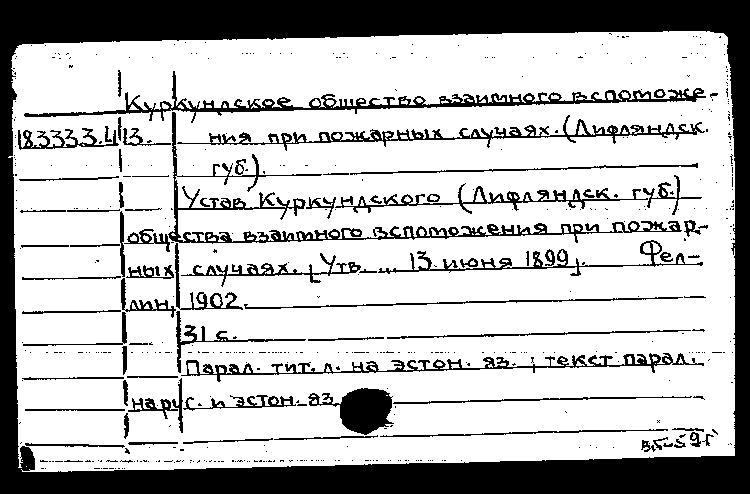 Куркундское общество взаимного вспоможе-
18.333.3.413. ния при пожарных случаях. (Лифляндск.
губ.).
Устав Куркундского (Лифляндск. губ.)
общества взаимного вспоможения при пожар-
ных случаях. [Утв. ... 13 июня 1899]. Фел-
лин, 1902.
31 с.
Парал. тит. л. на эстон. яз. ; текст парал.
на рус. и эстон. яз.